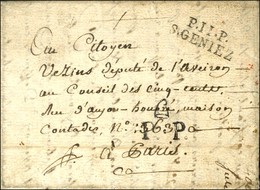 P.11.P.
S.GENIEZ
Au Citoyen
Vezins député de l'aveiron
au Conseil des cinq-cents,
Rue d'anjou-honoré, maison
Contades, N.º 963
P P
à Paris.